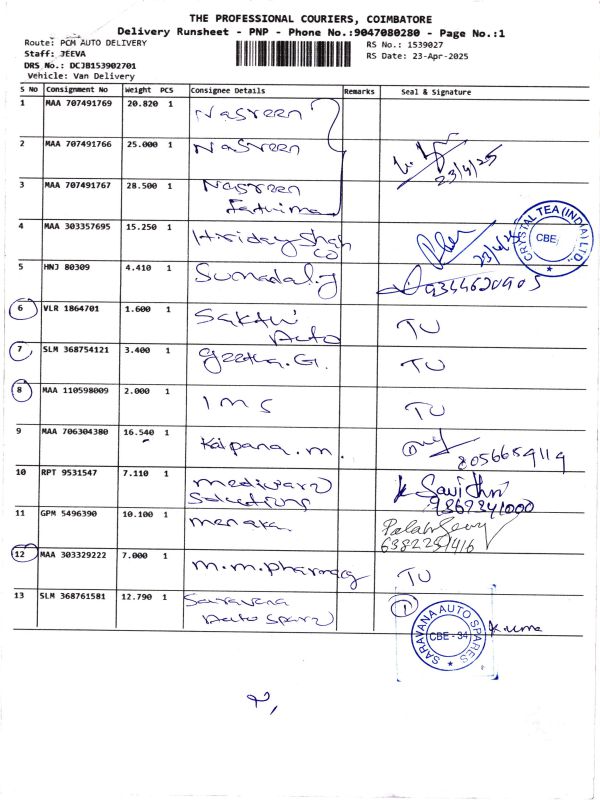 THE PROFESSIONAL COURIERS, COIMBATORE
Delivery Runsheet - PNP - Phone No.:9047080280 - Page No.:1
Route: PCM AUTO DELIVERY
RS No.: 1539027
Staff: JEEVA
RS Date: 23-Apr-2025
DRS No.: DCJB153902701
Vehicle: Van Delivery
S No Consignment No Weight PCS Consignee Details Remarks Seal & Signature
1 MAA 707491769 20.820 1 Nasreen
2 MAA 707491766 25.000 1 Nasreen
23/4/25
3 MAA 707491767 28.500 1 Nasreen
Fathima
4 MAA 303357695 15.250 1 Hriday Shah
Co
23/4/25
CRYSTAL TEA (INDIA) LTD.
CBE
5 HNJ 80309 4.410 1
6 VLR 1864701 1.600 1 Sakthi
Auto
TU
7 SLM 368754121 3.400 1 Geetha.G. TU
8 MAA 110598009 2.000 1 IMS TU
9 MAA 706304380 16.540 1 Kalpana.m.
8056659119
10 RPT 9531547 7.110 1
k Savithri
11 GPM 5496390 10.100 1 menaka.
12 MAA 303329222 7.000 1 m.m.pharmacy TU
13 SLM 368761581 12.790 1 Saravana
Auto Spares
1
SARAVANA AUTO SPARES
CBE - 34